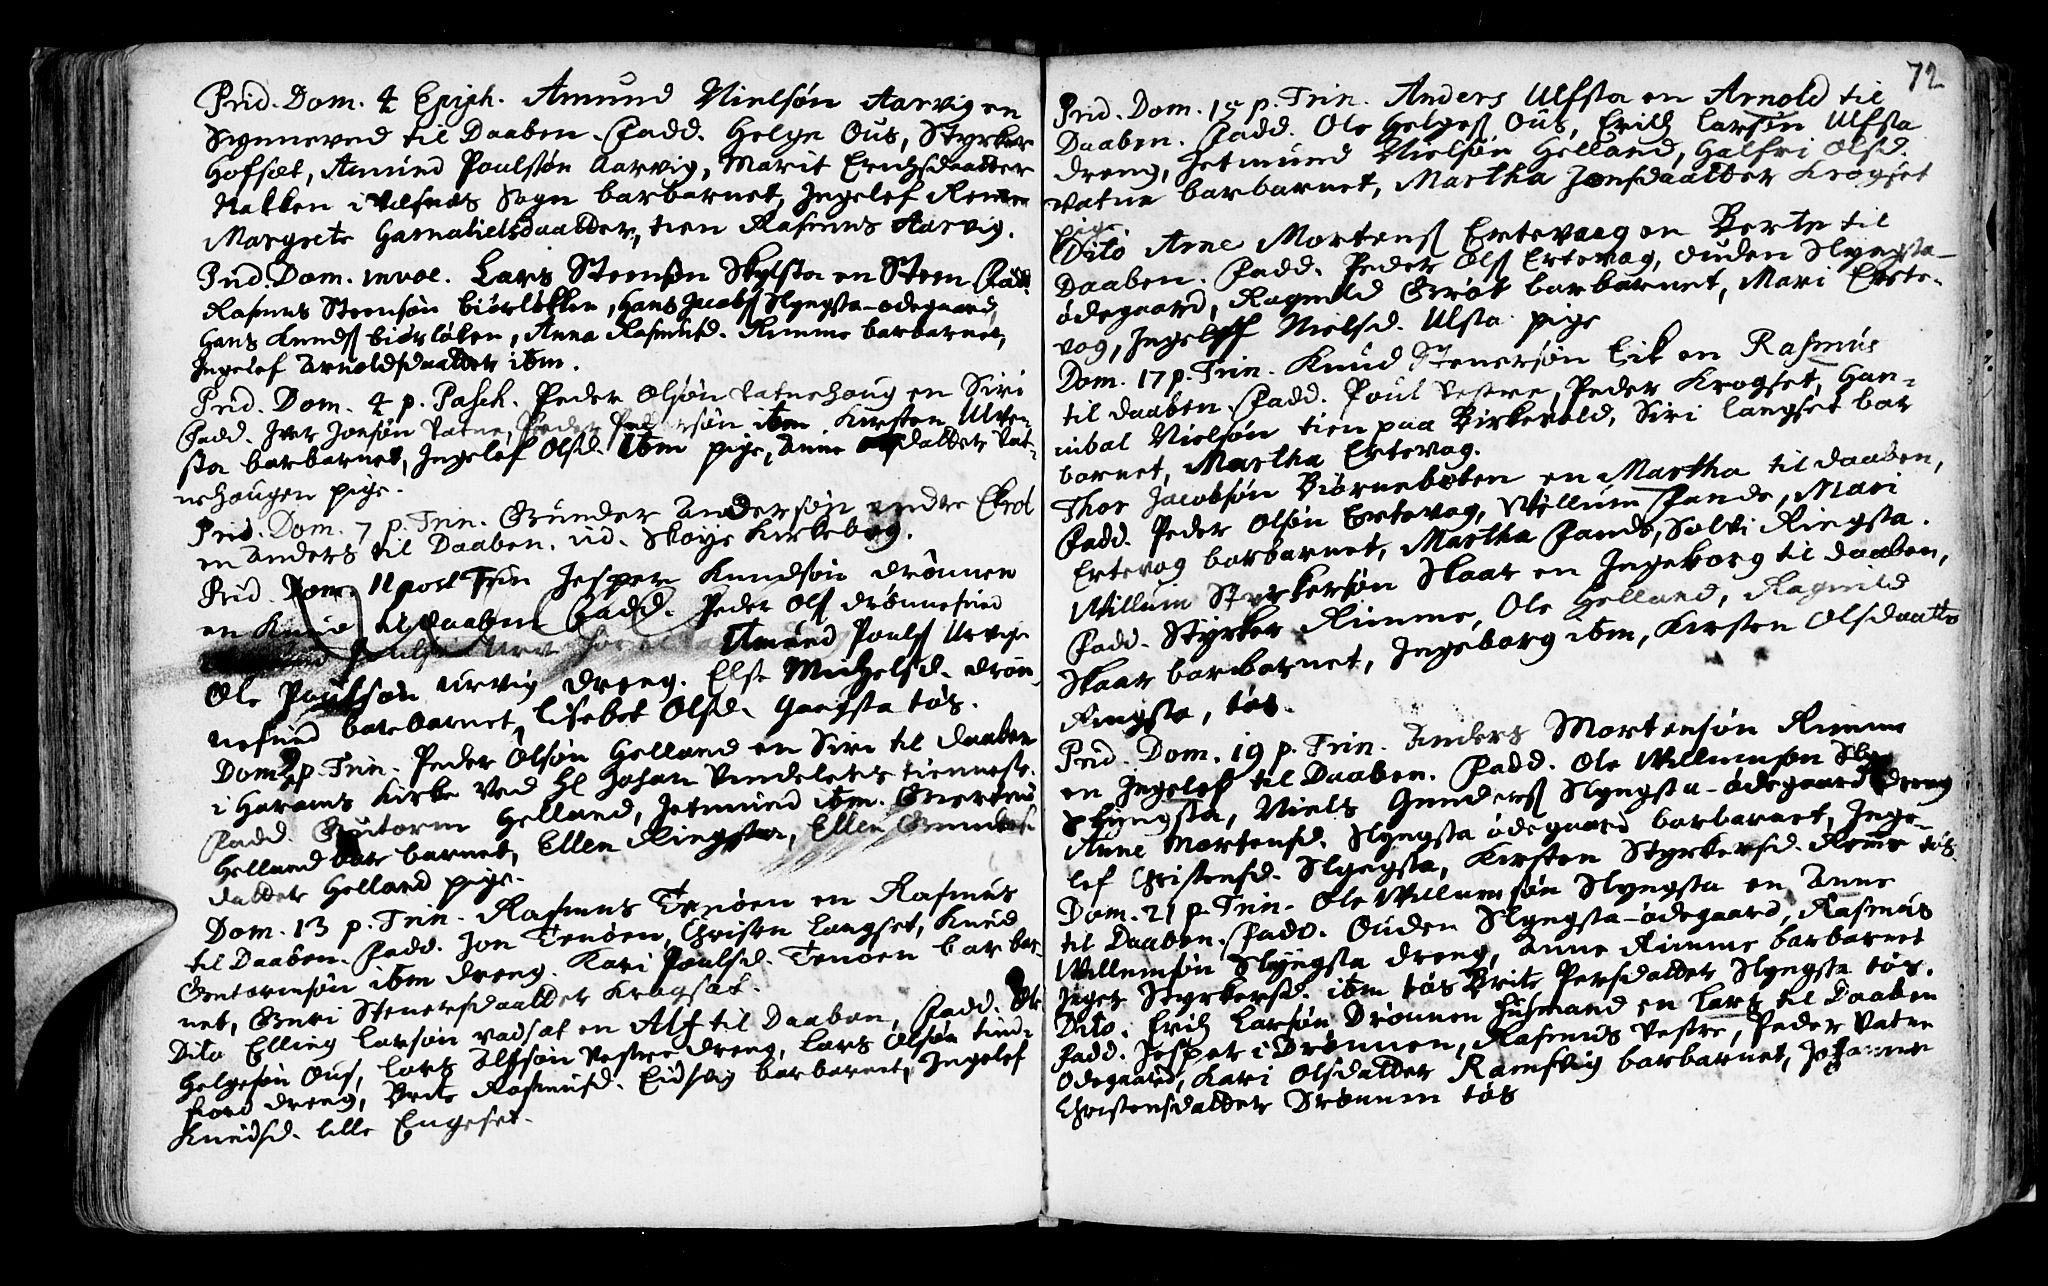 Prid. Dom. 4 Epiph. Amund Nielsøn Aarvig en
Synneved til Daaben. Fadd. Helge Ous, Styrker
Hofsæt, Amund Poulsøn Aarvig, Marit Erichsdaatter
Nakken i Sogn bar barnet, Ingelef
Margrete Gamalielsdaatter, tien Rasmus Aarvig.
Prid. Dom. invoc. Lars Steensøn Skylsta en Steen Fadd.
Rasmus Steensøn biørløkken, Hans Jacobs Slyngsta-ødegaard,
Hans Knuds biørløken, Anna Rasmusd. Rimme bar barnet,
Ingelef Arnoldsdaatter itm.
Prid. Dom. 4 p. Pasch. Peder Olsøn Vatnehaug en Siri
Fadd. Iver Jonsøn Vatne, Peder itm Kirsten Ulven-
sta bar barnet, Ingelef Olsd. itm pige, Anne daatter Vat-
nehaugen pige.
Prid. Dom. 7 p. Trin. Gunder Andersøn indre Ekrol
en Anders til Daaben. vid. Skoye Kirkebog.
Prid. Dom. 11 post Trin Jesper Knudsøn drønnen
en Knud til Daaben Fadd. Peder Ols drønnesund
Amund Pouls Urvige
Ole Poulsøn urvig dreng. Else Michelsd. drøn-
nesund bar barnet, lisebet Olsd. Gangsta tøs.
Dom. p. Trin. Peder Olsøn Helland en Siri til daaben
i Harams Kirke ved Hl Johan Vindelets tienneste.
Fadd. Gutorm Helland, Jetmund itm. Mertens
Helland bar barnet, Ellen Ringsta, Ellen
daatter Helland pige.
Dom. 13 p. Trin. Rasmus Tenøen en Rasmus
til Daaben. Fadd. Jon Tenøen, Christen Langset, Knud
Guttormsøn itm dreng. Kari Poulsd. Tenøen bar bar-
net, Guri Stenersdaatter Krogsæt.
Dito Elling Larsøn vadsæt en Alf til Daaben, Fadd. Ole
Helgesøn Ous, Lars Alfsøn Vestre dreng, Lars Olsøn Tind-
fiord dreng, Brite Rasmusd. Eidsvig bar barnet, Ingelef
Knudsd. lille Engeset.
72
Prid. Dom. 15 p. Trin. Anders Ulfsta en Arnold til
Daaben. Fadd. Ole Helges Ous, Erich Larsøn Ulfsta
dreng, Jetmund Nielsøn Helland, Halfri Olsd.
Vatne bar barnet, Martha Jonsdaatter Krogset
pige.
Dito Arne Mortens Ertevaag en Berte til
Daaben. Fadd. Peder Ols Ertevog, Ouden Slyngsta-
ødegaard, Ragnild Grøt bar barnet, Mari Erte-
vog, Ingelef Nielsd. Ulsta pige
Dom. 17 p. Trin. Knud Stenersøn Eik en Rasmus
til daaben. Fadd. Poul Vestre, Peder Krogset, Han-
nibal Nielsøn tien paa Birkevold, Siri langset bar
barnet, Martha Ertevog.
Thor Jacobsøn Biørnebøten en Martha til daaben,
Fadd. Peder Olsøn Ertevog, Willum Sande, Mari
Ertevog bar barnet, Martha Sande, Solvi Ringsta.
Willum Styrkersøn Skaar en Ingeborg til daaben,
Fadd. Styrker Rimme, Ole Helland, Ragnild
Skaar bar barnet, Ingeborg itm, Kirsten Olsdaatter
Ringsta, tøs.
Prid. Dom. 19 p. Trin. Anders Mortensøn Rimme
en Ingelef til Daaben. Fadd. Ole Willumsøn
Slyngsta, Niels Gunders Slyngsta-ødegaard dreng
Anne Mortensd. Slyngsta ødegaard bar barnet, Inge-
lef Christensd. Slyngsta, Kirsten Styrkersd. Remme tøs
Dom. 21 p. Trin. Ole Willumsøn Slyngsta en Anne
til Daaben. Fadd. Ouden Slyngsta-ødegaard, Rasmus
Willumsøn Slyngsta dreng, Anne Rimme bar barnet
Inger Styrkersd. itm tøs Brite Persdatter Slyngsta tøs.
Dito. Erich Larsøn Drønnen Husmand en Lars til Daaben
Fadd. Jesper i Drønnen, Rasmus Vestre, Peder Vatne
Ødegaard, Kari Olsdatter Ramsvig bar barnet, Johanne
Christensdatter Drønnen tøs